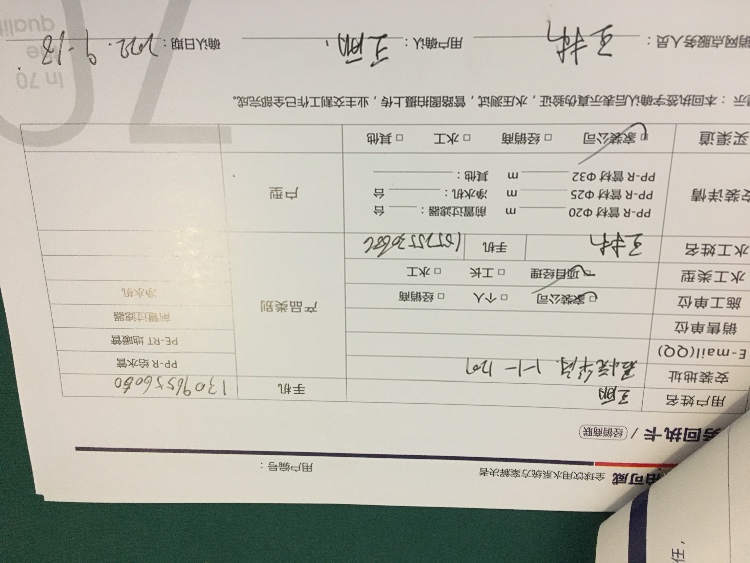 柏可威 全球饮用水系统方案解决者 用户编号：
务回执卡 / 经销商联
用户姓名 王丽 手机 13096556060
安装地址 1-1-1201
E-mail(QQ)
销售单位
施工单位 家装公司 □ 个人 □ 经销商
水工类型 项目经理 □ 工长 □ 水工
水工姓名 王林 手机
产品类别 PP-R 给水管
PE-RT 地暖管
前置过滤器
净水机
安装详情 PP-R 管材 Φ20 m 前置过滤器： 台
PP-R 管材 Φ25 m 净水机： 台
PP-R 管材 Φ32 m 其他：
户型
买渠道 □ 家装公司 □ 经销商 □ 水工 □ 其他
示：本回执签字确认后表示真伪验证，水压测试，管路图拍摄上传，业主交割工作已全部完成。
销网点服务人员： 王林 用户确认： 王丽 确认日期： 2022.9-13
70
In 70
the
quali
任，